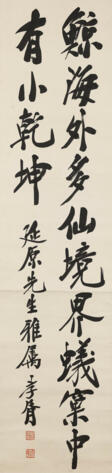 鯨海外多仙境界蟻窠中
有小乾坤
延原先生雅屬 孝胥